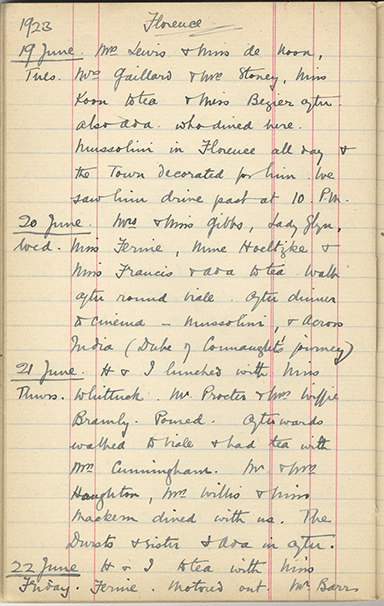 1923 Florence
19 June. Mrs Lewis & Miss de Noon,
Tues. Mrs Gaillard & Mrs Stoney, Miss
Koon to tea & Miss Bezier after.
also Ada. who dined here.
Mussolini in Florence all day &
the Town decorated for him. We
saw him drive past at 10 P.M.
20 June. Mrs & Miss Gibbs, Lady Glyn,
Wed. Miss Fernie, Mme Hoeltzke &
Miss Francis & Ada to tea. Walk
after round viale. After dinner
to cinema – Mussolini, & Across
India (Duke of Connaught's journey)
21 June. H & I lunched with Miss
Thurs. Whittuck. Mr Procter & Mrs
Bramly. Poured. Afterwards
walked to Viale & had tea with
Mrs Cunningham. Mr & Mrs
Haughton, Mrs Willis & Miss
Mackern dined with us. The
Dursts & sister & Ada in after.
22 June H & I to tea with Miss
Friday. Fernie. Motored out. Mr Barrs